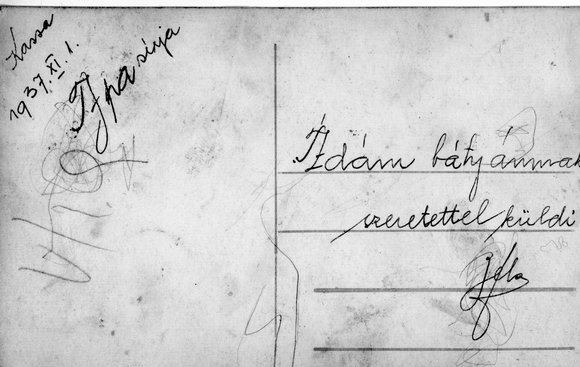 Kassa
1937. XI. 1.
Apa sírja
Ádám bátyámnak
szeretettel küldi
Béla